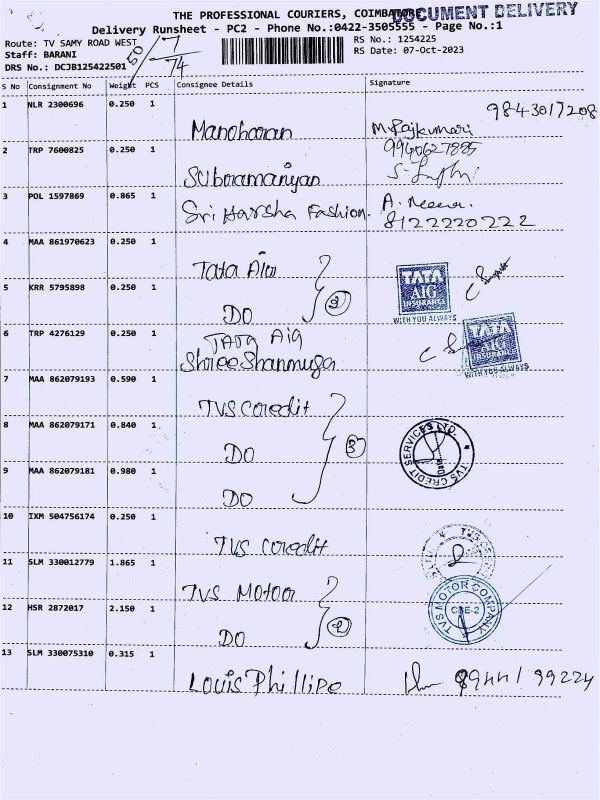 THE PROFESSIONAL COURIERS, COIMBATORE
DOCUMENT DELIVERY
Delivery Runsheet - PC2 - Phone No.:0422-3505555 - Page No.:1
Route: TV SAMY ROAD WEST
RS No.: 1254225
Staff: BARANI
RS Date: 07-Oct-2023
DRS No.: DCJB125422501
50/7/74
S No Consignment No Weight PCS Consignee Details Signature
1 NLR 2300696 0.250 1 Manoharan M. Rajkumari 9843017208
2 TRP 7600825 0.250 1 Subramaniyan 9940627885
3 POL 1597869 0.865 1 Sri Harsha Fashion. A. Meena. 8122220222
4 MAA 861970623 0.250 1 Tata Aia
5 KRR 5795898 0.250 1 DO 2
TATA AIG INSURANCE
WITH YOU ALWAYS
6 TRP 4276129 0.250 1 Tata Aig
Shree Shanmuga
TATA AIG INSURANCE
WITH YOU ALWAYS
7 MAA 862079193 0.590 1 TVS Credit
8 MAA 862079171 0.840 1 DO 3
9 MAA 862079181 0.980 1 DO
TVS CREDIT SERVICES LTD.
10 IXM 504756174 0.250 1 TVS Credit
11 SLM 330012779 1.865 1 TVS Motor
12 HSR 2872017 2.150 1 DO 2
TVS MOTOR COMPANY
CBE-2
13 SLM 330075310 0.315 1 Louis Phillipe 89441 99224